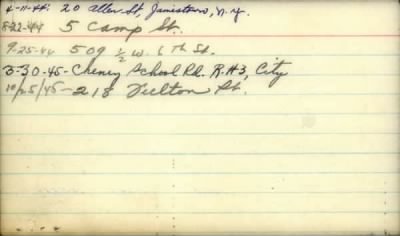 4-11-44: 20 Allen St, Jamestown, N.Y.
8-22-44 5 Camp St.
9-25-44 509 1/2 W. 6th St.
3-30-45- Cheney School Rd. R.#3, City
10/25/45-218 Fulton St.